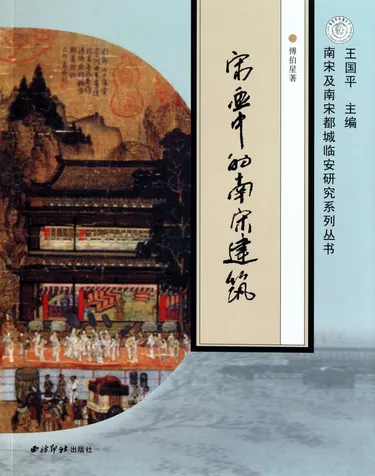 王国平 主编
南宋及南宋都城临安研究系列丛书
傅伯星著
宋画中的南宋建筑
西泠印社出版社